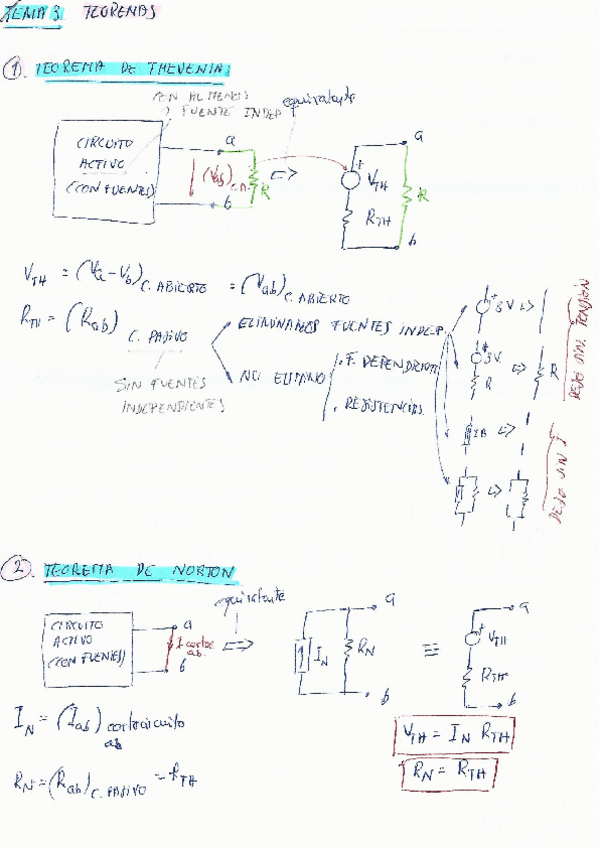 TEMA 3 TEOREMAS
1. TEOREMA DE THEVENIN:
CON AL MENOS
1 FUENTE INDEP
equivalente
CIRCUITO
ACTIVO
(CON FUENTES)
a
(Vab)C.A.
R
b
=>
a
+
VTH
RTH
R
b
VTH = (Va - Vb) C. ABIERTO = (Vab) C. ABIERTO
RTH = (Rab) C. PASIVO
SIN FUENTES
INDEPENDIENTES
ELIMINAMOS FUENTES INDEP.
NO ELIMINO
. F. DEPENDIENTES
. RESISTENCIAS
3V =>
3V
R
=>
R
DEJO SIN TENSIÓN
=>
=>
DEJO SIN I
2. TEOREMA DE NORTON
equivalente
CIRCUITO
ACTIVO
(CON FUENTES)
a
I cortoc
ab
b
=>
a
IN
RN
b
≡
a
+
VTH
RTH
b
IN = (Iab) cortocircuito
ab
RN = (Rab) C. PASIVO = RTH
VTH = IN RTH
RN = RTH